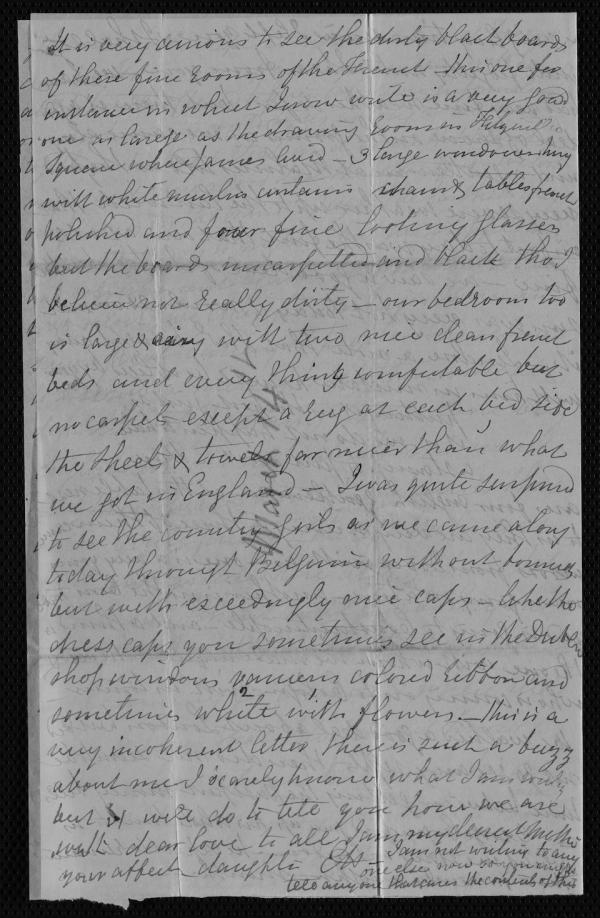 It is very curious to see the dirty black boards
of these fine rooms of the French - this one for
instance in which I now write is a very good
one as large as the drawing room in Fitzwil
Square where James lived - 3 large windows hung
with white muslin curtains chairs & tables french
polished and four fine looking glasses
but the boards uncarpetted and black tho' I
believe not really dirty - our bedroom too
is large & airy with two nice clean french
beds and every thing comfortable but
no carpet except a rug at each bed side
the sheets & towels far nicer than what
we got in England - I was quite surprised
to see the country girls as we came along
today through Belgium without bonnets
but with exceedingly nice caps - like the
dress caps you sometimes see in the Dublin
shop windows various colored ribbon and
sometimes white with flowers. - this is a
very incoherent letter there is such a buzz
about me I scarcely know what I am writ
but it will do to tell you how we are
with dear love to all I am my dearest Mother
your affect. daughter
I am not writing to any
one else now so you might
tell anyone that cares the contents of this
March 14